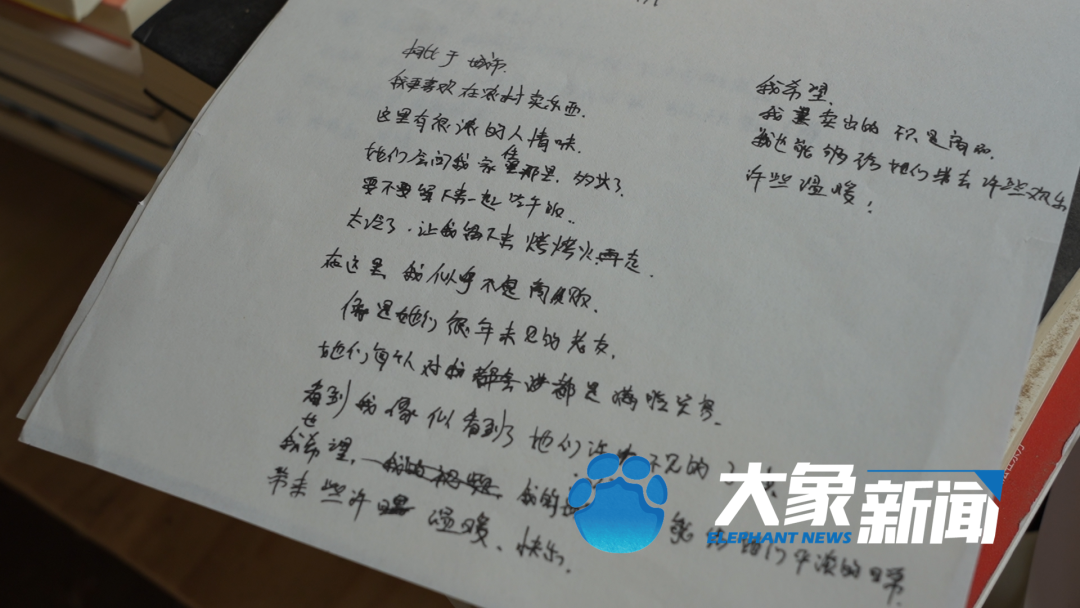 相比于城市.
我更喜欢在农村卖东西.
这里有很浓的人情味.
她们会问我家住那里、多大了.
要不要留下来一起吃午饭..
太冷了.让我留下来烤烤火再走.
在这里 我似乎不是商贩.
像是她们很年未见的老友.
她们每个人对我都是满脸笑容.
看到我像似看到了她们许久不见的
我也希望, 我的 能给她们平淡的日常
带来些许温暖、快乐.
我希望.
我卖出的不只是商品.
我也能够给她们带去许些欢乐
许些温暖!
大象新闻
ELEPHANT NEWS